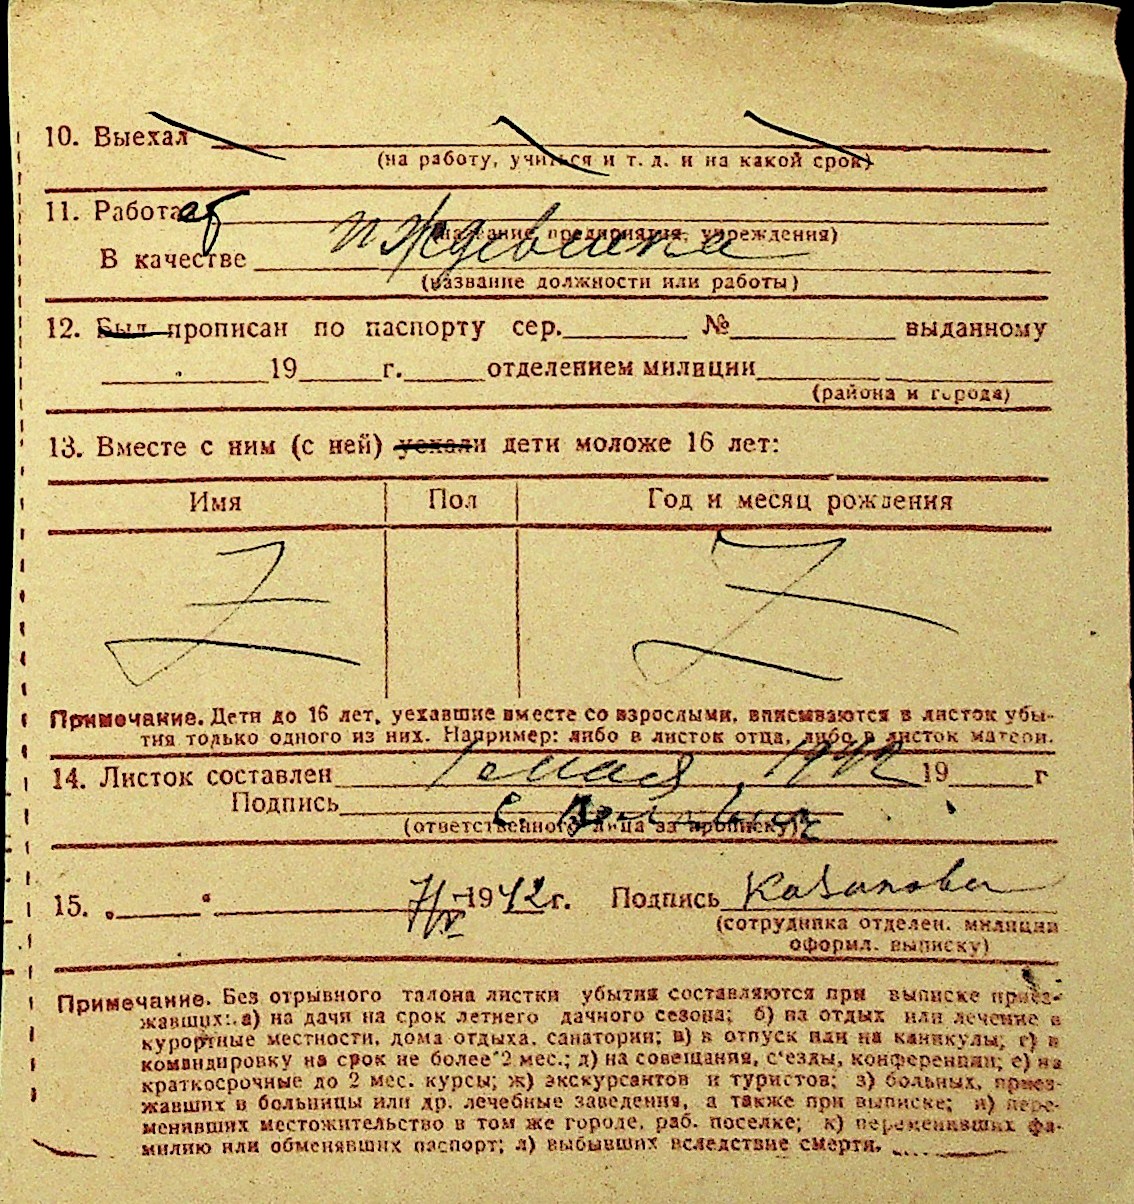 10. Выехал
(на работу, учиться и т. д. и на какой срок)
11. Работал
(название предприятия, учреждения)
В качестве иждивенка
(название должности или работы)
12. Был прописан по паспорту сер. № выданному
19 г. отделением милиции
(района и города)
13. Вместе с ним (с ней) уехали дети моложе 16 лет:
Имя Пол Год и месяц рождения
Z Z
Примечание. Дети до 16 лет, уехавшие вместе со взрослыми, вписываются в листок убы-
тия только одного из них. Например: либо в листок отца, либо в листок матери.
14. Листок составлен 1 мая 1942 19 г
Подпись
(ответственного лица за прописку)
15. „ " 7/V 1942 г. Подпись Казакова
(сотрудника отделен. милиции
оформл. выписку)
Примечание. Без отрывного талона листки убытия составляются при выписке приез-
жавших: а) на дачи на срок летнего дачного сезона; б) на отдых или лечение в
курортные местности, дома отдыха, санатории; в) в отпуск или на каникулы; г) в
командировку на срок не более 2 мес.; д) на совещания, с'езды, конференции; е) на
краткосрочные до 2 мес. курсы; ж) экскурсантов и туристов; з) больных, приез-
жавших в больницы или др. лечебные заведения, а также при выписке; и) пере-
менивших местожительство в том же городе, раб. поселке; к) переменивших фа-
милию или обменявших паспорт; л) выбывших вследствие смерти.